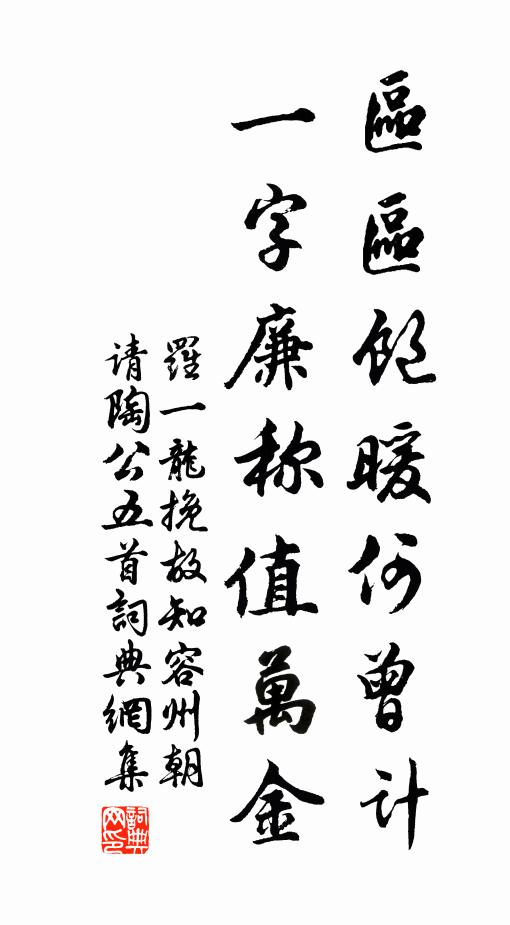 區區飽暖何曾计
一字廉称值萬金
羅一龍挽故知容州朝
请陶公五首詞典網集
詞典网印